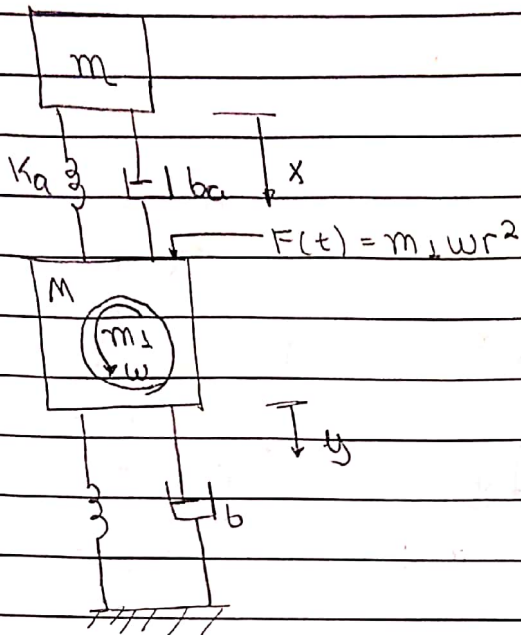 m
Ka ba x
F(t) = m₁wr²
M
m₁
w
y
b